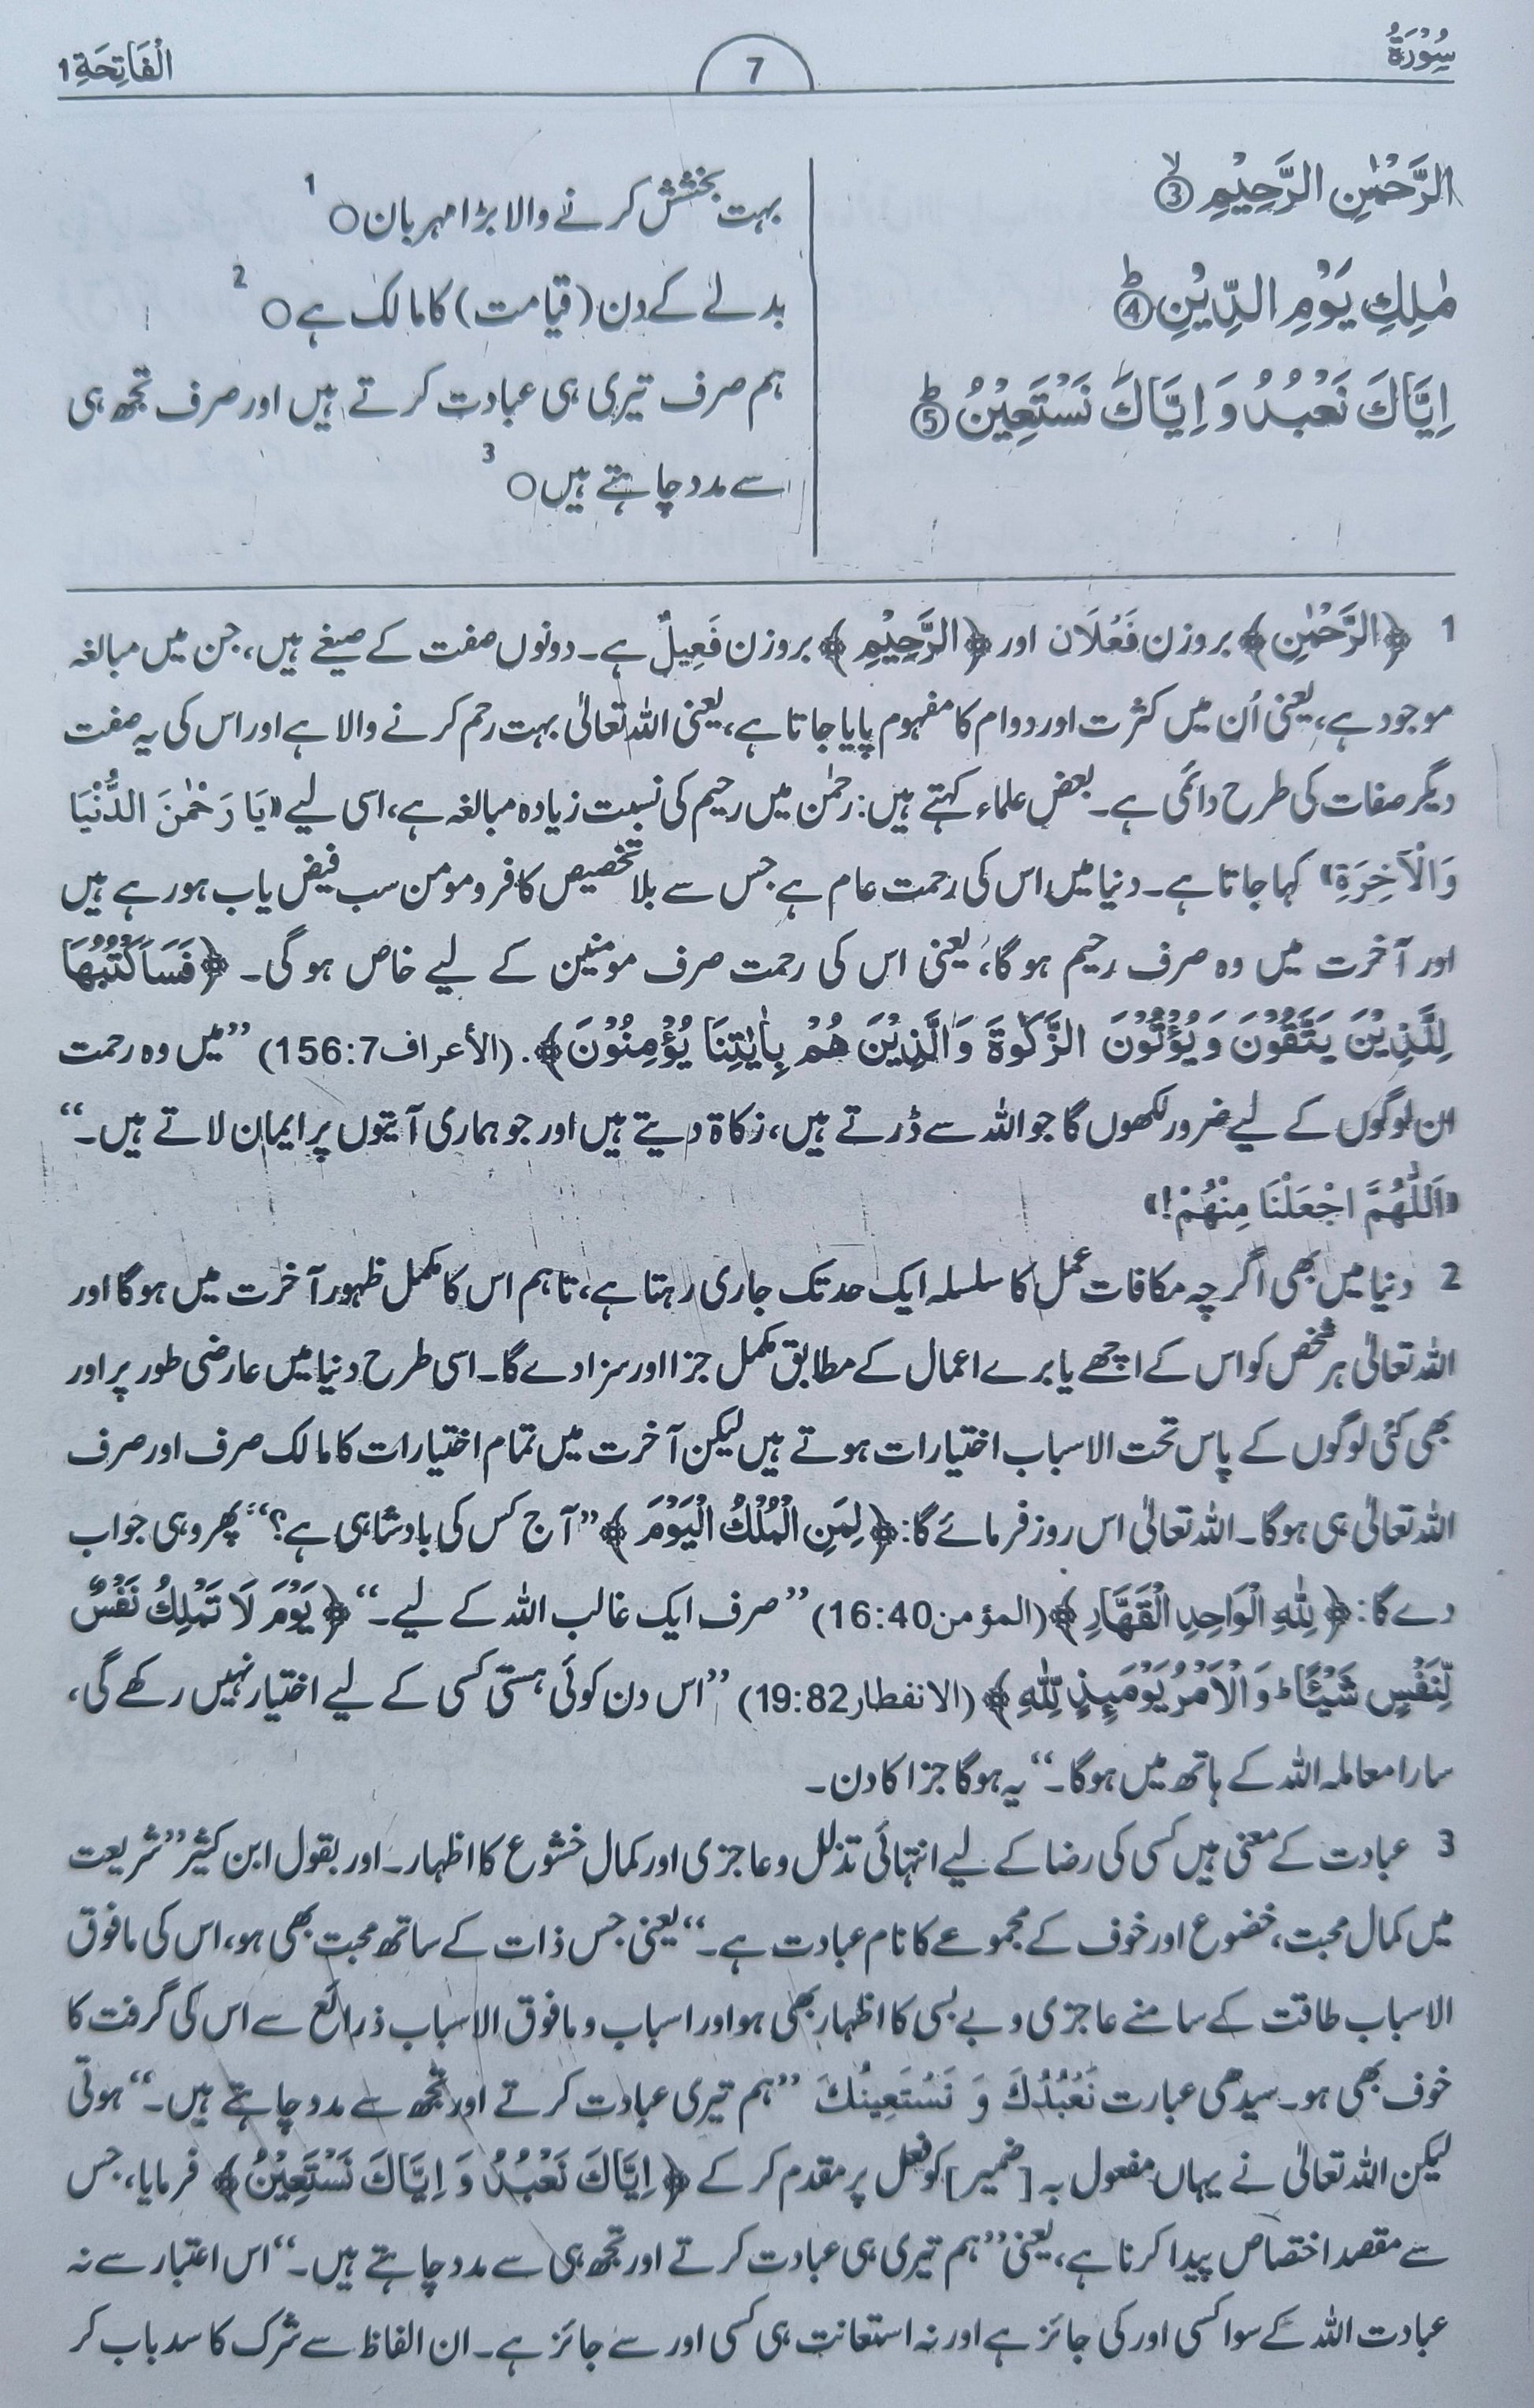 سُوْرَةُ
7
الْفَاتِحَةِ 1
الرَّحْمٰنِ الرَّحِيْمِ ۙ③
مٰلِكِ يَوْمِ الدِّيْنِ ؕ④
اِيَّاكَ نَعْبُدُ وَ اِيَّاكَ نَسْتَعِيْنُ ؕ⑤
بہت بخشش کرنے والا بڑا مہربان○ 1
بدلے کے دن (قیامت) کا مالک ہے○ 2
ہم صرف تیری ہی عبادت کرتے ہیں اور صرف تجھ ہی
سے مدد چاہتے ہیں○ 3
1 ﴿الرَّحْمٰنِ﴾ بروزن فَعْلَان اور ﴿الرَّحِيْمِ﴾ بروزن فَعِيلٌ ہے۔ دونوں صفت کے صیغے ہیں، جن میں مبالغہ
موجود ہے، یعنی اُن میں کثرت اور دوام کا مفہوم پایا جاتا ہے، یعنی اللہ تعالیٰ بہت رحم کرنے والا ہے اور اس کی یہ صفت
دیگر صفات کی طرح دائمی ہے۔ بعض علماء کہتے ہیں: رحمٰن میں رحیم کی نسبت زیادہ مبالغہ ہے، اسی لیے «يَا رَحْمٰنَ الدُّنْيَا
وَالْآخِرَةِ» کہا جاتا ہے۔ دنیا میں اس کی رحمت عام ہے جس سے بلا تخصیص کافر و مومن سب فیض یاب ہو رہے ہیں
اور آخرت میں وہ صرف رحیم ہوگا، یعنی اس کی رحمت صرف مومنین کے لیے خاص ہوگی۔ ﴿فَسَاَكْتُبُهَا
لِلَّذِيْنَ يَتَّقُوْنَ وَ يُؤْتُوْنَ الزَّكٰوةَ وَالَّذِيْنَ هُمْ بِاٰيٰتِنَا يُؤْمِنُوْنَ﴾. (الأعراف 156:7) ”میں وہ رحمت
ان لوگوں کے لیے ضرور لکھوں گا جو اللہ سے ڈرتے ہیں، زکاۃ دیتے ہیں اور جو ہماری آیتوں پر ایمان لاتے ہیں۔“
«اَللّٰهُمَّ اجْعَلْنَا مِنْهُمْ!»
2 دنیا میں بھی اگرچہ مکافات عمل کا سلسلہ ایک حد تک جاری رہتا ہے، تاہم اس کا مکمل ظہور آخرت میں ہوگا اور
اللہ تعالیٰ ہر شخص کو اس کے اچھے یا برے اعمال کے مطابق مکمل جزا اور سزا دے گا۔ اسی طرح دنیا میں عارضی طور پر اور
بھی کئی لوگوں کے پاس تحت الاسباب اختیارات ہوتے ہیں لیکن آخرت میں تمام اختیارات کا مالک صرف اور صرف
اللہ تعالیٰ ہی ہوگا۔ اللہ تعالیٰ اس روز فرمائے گا: ﴿لِمَنِ الْمُلْكُ الْيَوْمَ﴾ ”آج کس کی بادشاہی ہے؟“ پھر وہی جواب
دے گا: ﴿لِلّٰهِ الْوَاحِدِ الْقَهَّارِ﴾ (المؤمن 16:40) ”صرف ایک غالب اللہ کے لیے۔“ ﴿يَوْمَ لَا تَمْلِكُ نَفْسٌ
لِّنَفْسٍ شَيْـًٔا ؕ وَ الْاَمْرُ يَوْمَىِٕذٍ لِّلّٰهِ﴾ (الانفطار 19:82) ”اس دن کوئی ہستی کسی کے لیے اختیار نہیں رکھے گی،
سارا معاملہ اللہ کے ہاتھ میں ہوگا۔“ یہ ہوگا جزا کا دن۔
3 عبادت کے معنی ہیں کسی کی رضا کے لیے انتہائی تذلل و عاجزی اور کمال خشوع کا اظہار۔ اور بقول ابن کثیر ”شریعت
میں کمال محبت، خضوع اور خوف کے مجموعے کا نام عبادت ہے۔“ یعنی جس ذات کے ساتھ محبت بھی ہو، اس کی مافوق
الاسباب طاقت کے سامنے عاجزی و بے بسی کا اظہار بھی ہو اور اسباب و مافوق الاسباب ذرائع سے اس کی گرفت کا
خوف بھی ہو۔ سیدھی عبارت نَعْبُدُكَ وَ نَسْتَعِينُكَ ”ہم تیری عبادت کرتے اور تجھ سے مدد چاہتے ہیں۔“ ہوتی
لیکن اللہ تعالیٰ نے یہاں مفعول بہ [ضمیر] کو فعل پر مقدم کر کے ﴿اِيَّاكَ نَعْبُدُ وَ اِيَّاكَ نَسْتَعِيْنُ﴾ فرمایا، جس
سے مقصد اختصاص پیدا کرنا ہے، یعنی ”ہم تیری ہی عبادت کرتے اور تجھ ہی سے مدد چاہتے ہیں۔“ اس اعتبار سے نہ
عبادت اللہ کے سوا کسی اور کی جائز ہے اور نہ استعانت ہی کسی اور سے جائز ہے۔ ان الفاظ سے شرک کا سدباب کر